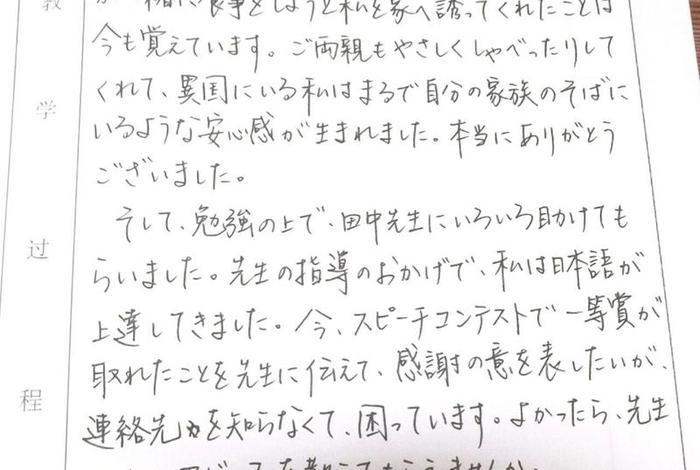 一緒に食事をしようと私を家へ誘ってくれたことは
今も覚えています。ご両親もやさしくしゃべったりして
くれて、異国にいる私はまるで自分の家族のそばに
いるような安心感が生まれました。本当にありがとう
ございました。
そして、勉強の上で、田中先生にいろいろ助けても
らいました。先生の指導のおかげで、私は日本語が
上達してきました。今、スピーチコンテストで一等賞が
取れたことを先生に伝えて、感謝の意を表したいが、
連絡先を知らなくて、困っています。よかったら、先生
教
学
过
程